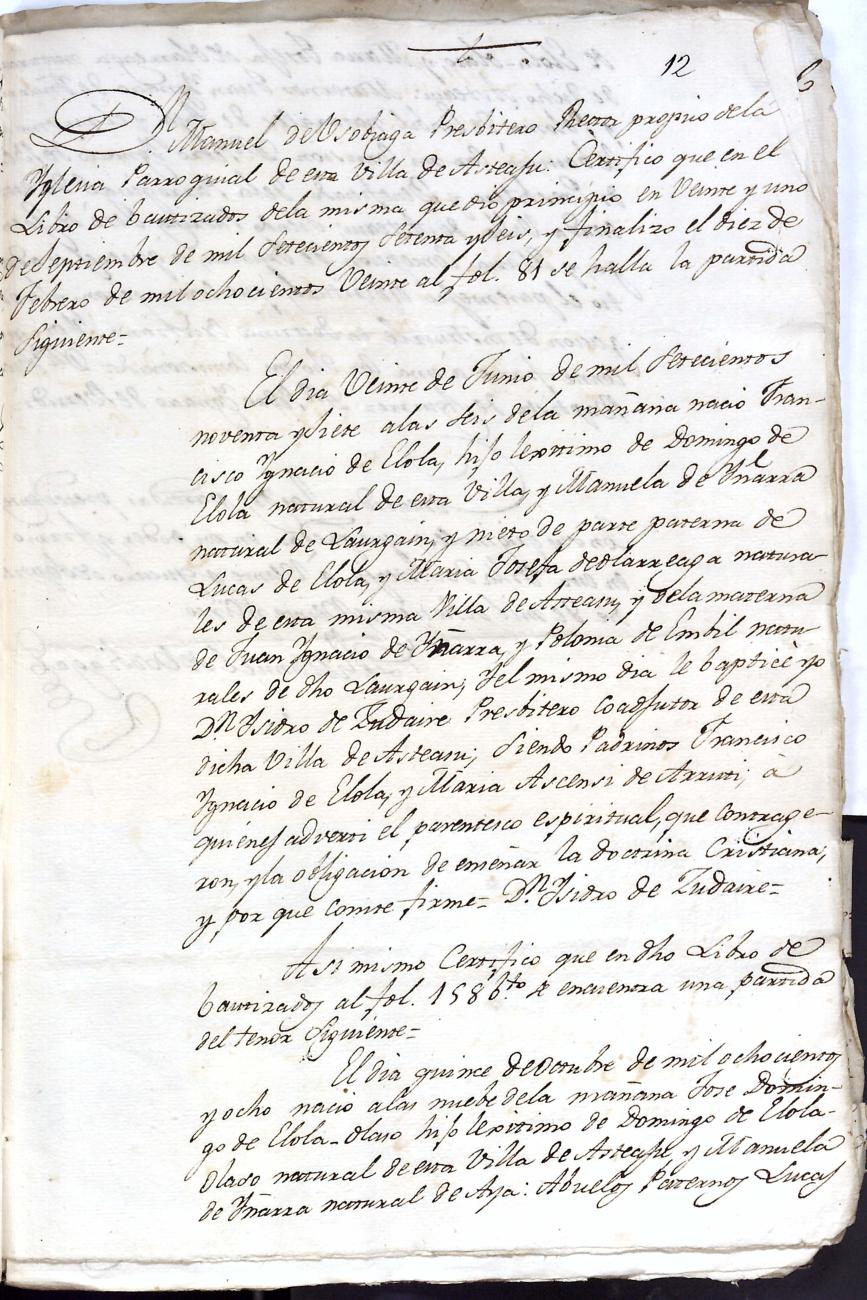 12
Dn. Manuel de Usobiaga Presbitero Rector propio dela
Yglesia Parroquial de esta Villa de Asteasu: Certifico que en el
Libro de bautizados dela misma que dio principio en Veinte y uno
de Septiembre de mil Setecientos Setenta y seis, y finalizo el diez de
Febrero de mil ochocientos Veinte al fol. 81 se halla la partida
Siguiente=
El dia Veinte de Junio de mil Setecientos
noventa y siete alas seis dela mañana nacio Fran-
cisco Ygnacio de Elola, hijo lexitimo de Domingo de
Elola natural de esta Villa, y Manuela de Yñarra
natural de Laurgain, y nieto de parte paterna de
Lucas de Elola, y Maria Josefa de olarreaga natura-
les de esta misma Villa de Asteasu, y dela materna
de Juan Ygnacio de Yñarra, y Polonia de Embil natu-
rales de dho Laurgain; y el mismo dia le baptice yo
Dn. Ysidro de Zudaire Presbitero coadjutor de esta
dicha Villa de Asteasu; siendo Padrinos Francisco
Ygnacio de Elola, y Maria Ascensi de Arruti, à
quienes adverti el parentesco espiritual, que contrage-
ron, y la obligacion de enseñar la doctrina Cristiana;
y por que conste firme= Dn. Ysidro de Zudaire=
Asi mismo Certifico que en dho Libro de
bautizados al fol. 158 bto. se encuentra una partida
del tenor Siguiente=
El dia quince de octubre de mil ochocientos
y ocho nacio alas nuebe dela mañana Jose Domin-
go de Elola-olaso hijo lexitimo de Domingo de Elola-
olaso natural de esta Villa de Asteasu, y Manuela
de Yñarra natural de Aya: Abuelos Paternos Lucas